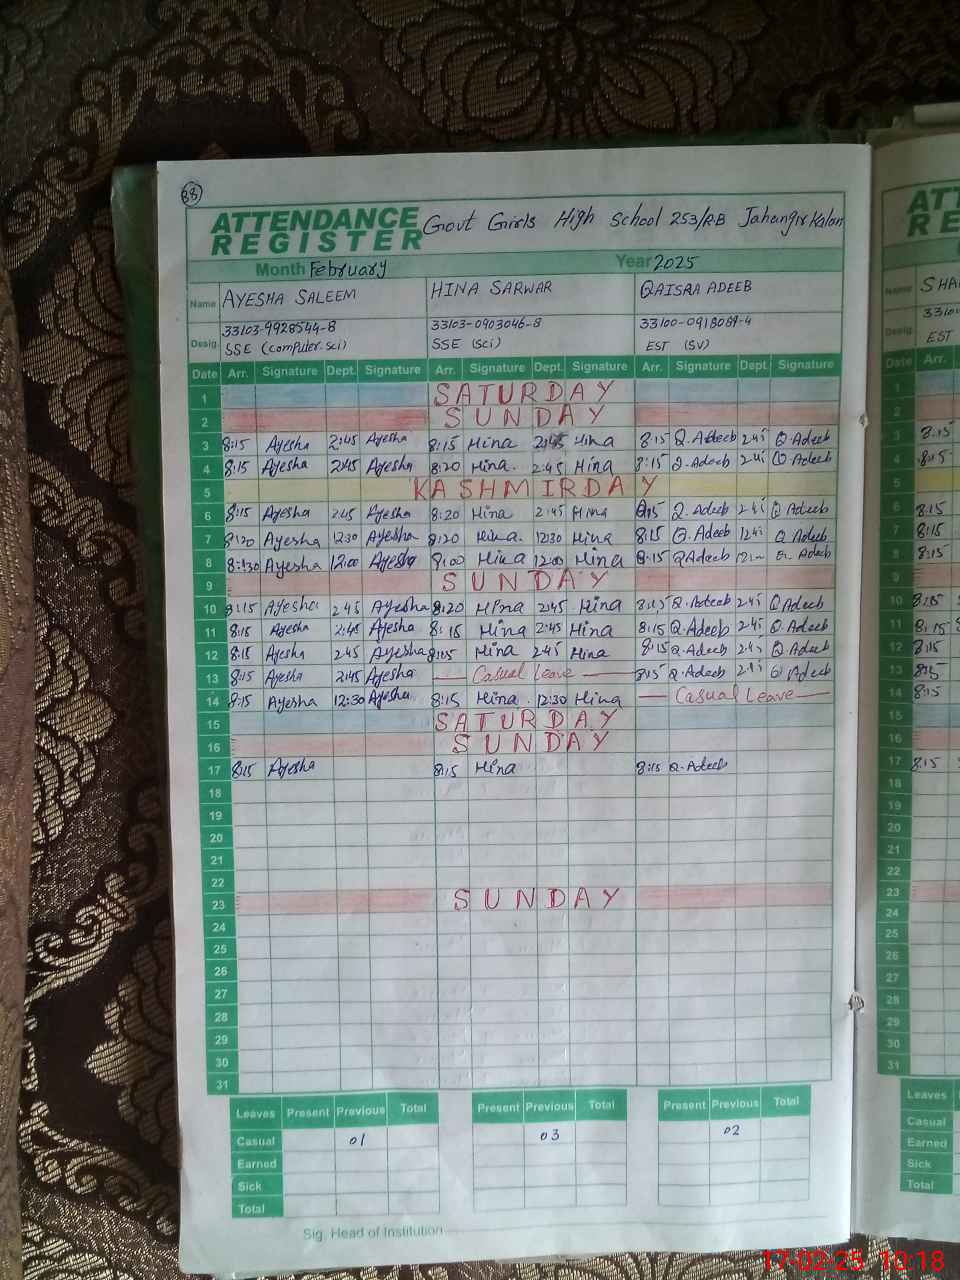 38
ATTENDANCE REGISTER Govt Girls High School 253/RB Jahangir Kalan
Month February Year 2025
Name AYESHA SALEEM HINA SARWAR QAISRA ADEEB
33103-9928544-8 33103-0903046-8 33100-0918089-4
Desig. SSE (computer.sci) SSE (sci) EST (SV)
Date Arr. Signature Dept. Signature Arr. Signature Dept. Signature Arr. Signature Dept. Signature
1 SATURDAY
2 SUNDAY
3 8:15 Ayesha 2:45 Ayesha 8:15 Hina 2:45 Hina 8:15 Q.Adeeb 2:45 Q.Adeeb
4 8:15 Ayesha 2:45 Ayesha 8:20 Hina. 2:45 Hina 8:15 Q.Adeeb 2:45 Q.Adeeb
5 KASHMIR DAY
6 8:15 Ayesha 2:45 Ayesha 8:20 Hina 2:45 Hina 8:15 Q.Adeeb 2:45 Q Adeeb
7 8:20 Ayesha 12:30 Ayesha 8:20 Hina. 12:30 Hina 8:15 Q.Adeeb Q Adeeb
8 Ayesha 12:00 Ayesha 8:00 Hina 12:00 Hina 8:15 Q Adeeb Adeeb
9 SUNDAY
10 8:15 Ayesha 2:45 Ayesha 8:20 Hina 2:45 Hina 8:15 Q.Adeeb 2:45 Q Adeeb
11 8:15 Ayesha 2:45 Ayesha 8:15 Hina 2:45 Hina 8:15 Q.Adeeb 2:45 Q.Adeeb
12 8:15 Ayesha 2:45 Ayesha 8:15 Hina 2:45 Hina 8:15 Q.Adeeb 2:45 Q.Adeeb
13 8:15 Ayesha 2:45 Ayesha Casual Leave 8:15 Q.Adeeb 2:45 Q Adeeb
14 8:15 Ayesha 12:30 Ayesha 8:15 Hina. 12:30 Hina Casual Leave
15 SATURDAY
16 SUNDAY
17 8:15 Ayesha 8:15 Hina 8:15 Q.Adeeb
18
19
20
21
22
23 SUNDAY
24
25
26
27
28
29
30
31
Leaves Present Previous Total Present Previous Total Present Previous Total
Casual 01 03 02
Earned
Sick
Total
Sig. Head of Institution
Name SHA
3310
Desig. EST
Date Arr.
1
2
3 8:15
4 8:15
5
6 8:15
7 8:15
8 8:15
9
10 8:15
11 8:15
12 8:15
13 8:15
14 8:15
15
16
17 8:15
18
19
20
21
22
23
24
25
26
27
28
29
30
31
Leaves
Casual
Earned
Sick
Total
17-02-25 10:18